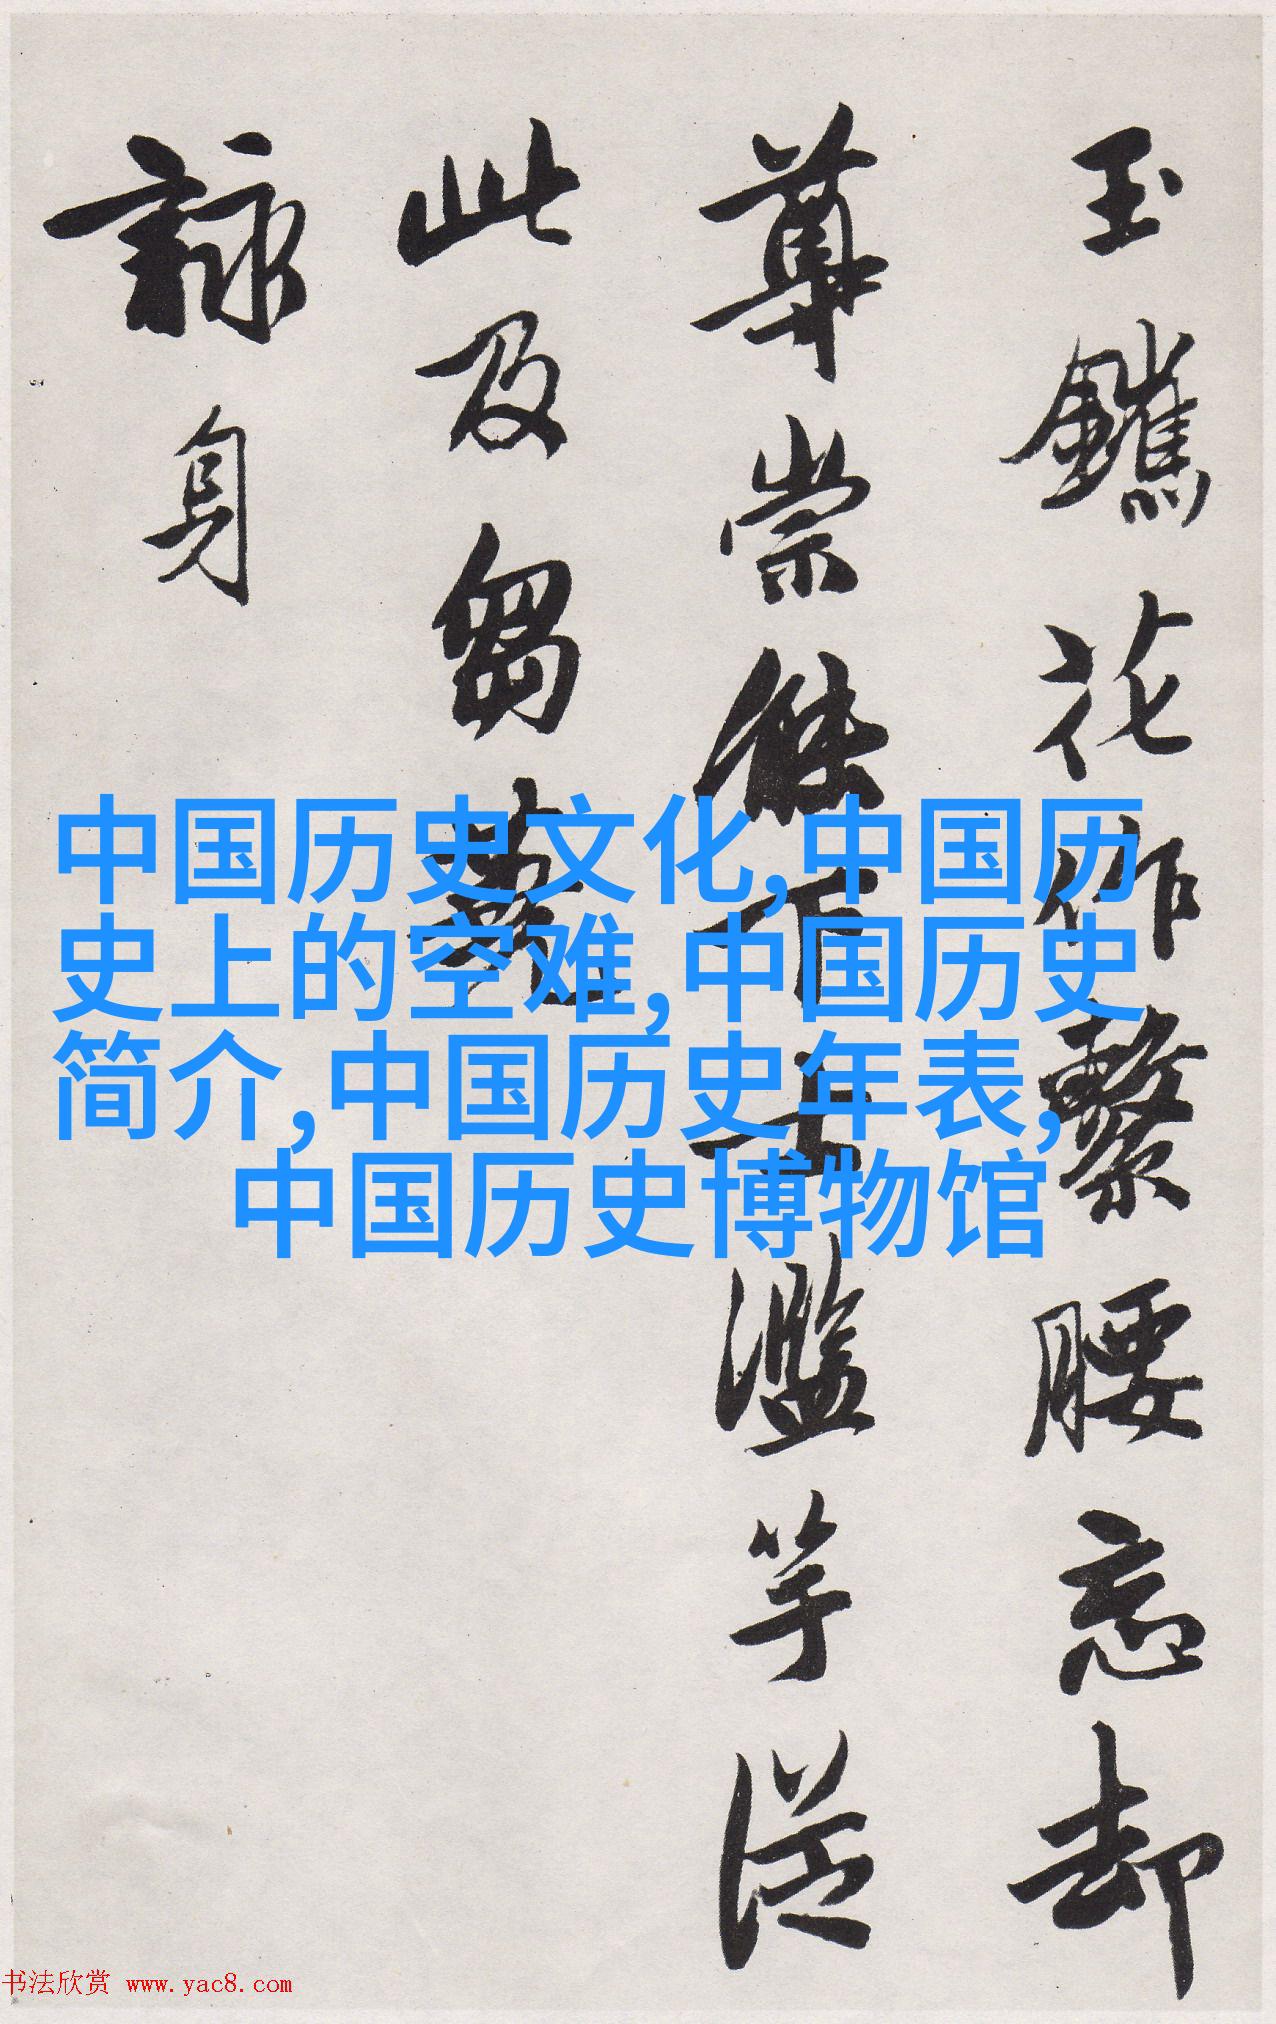 玉鑣花作繫腰忘却
萬崇儕下士濫竽從
此及芻蕘
詠身
中国历史文化,中国历
史上的空难,中国历史
简介,中国历史年表,
中国历史博物馆
书法欣赏 www.yac8.com